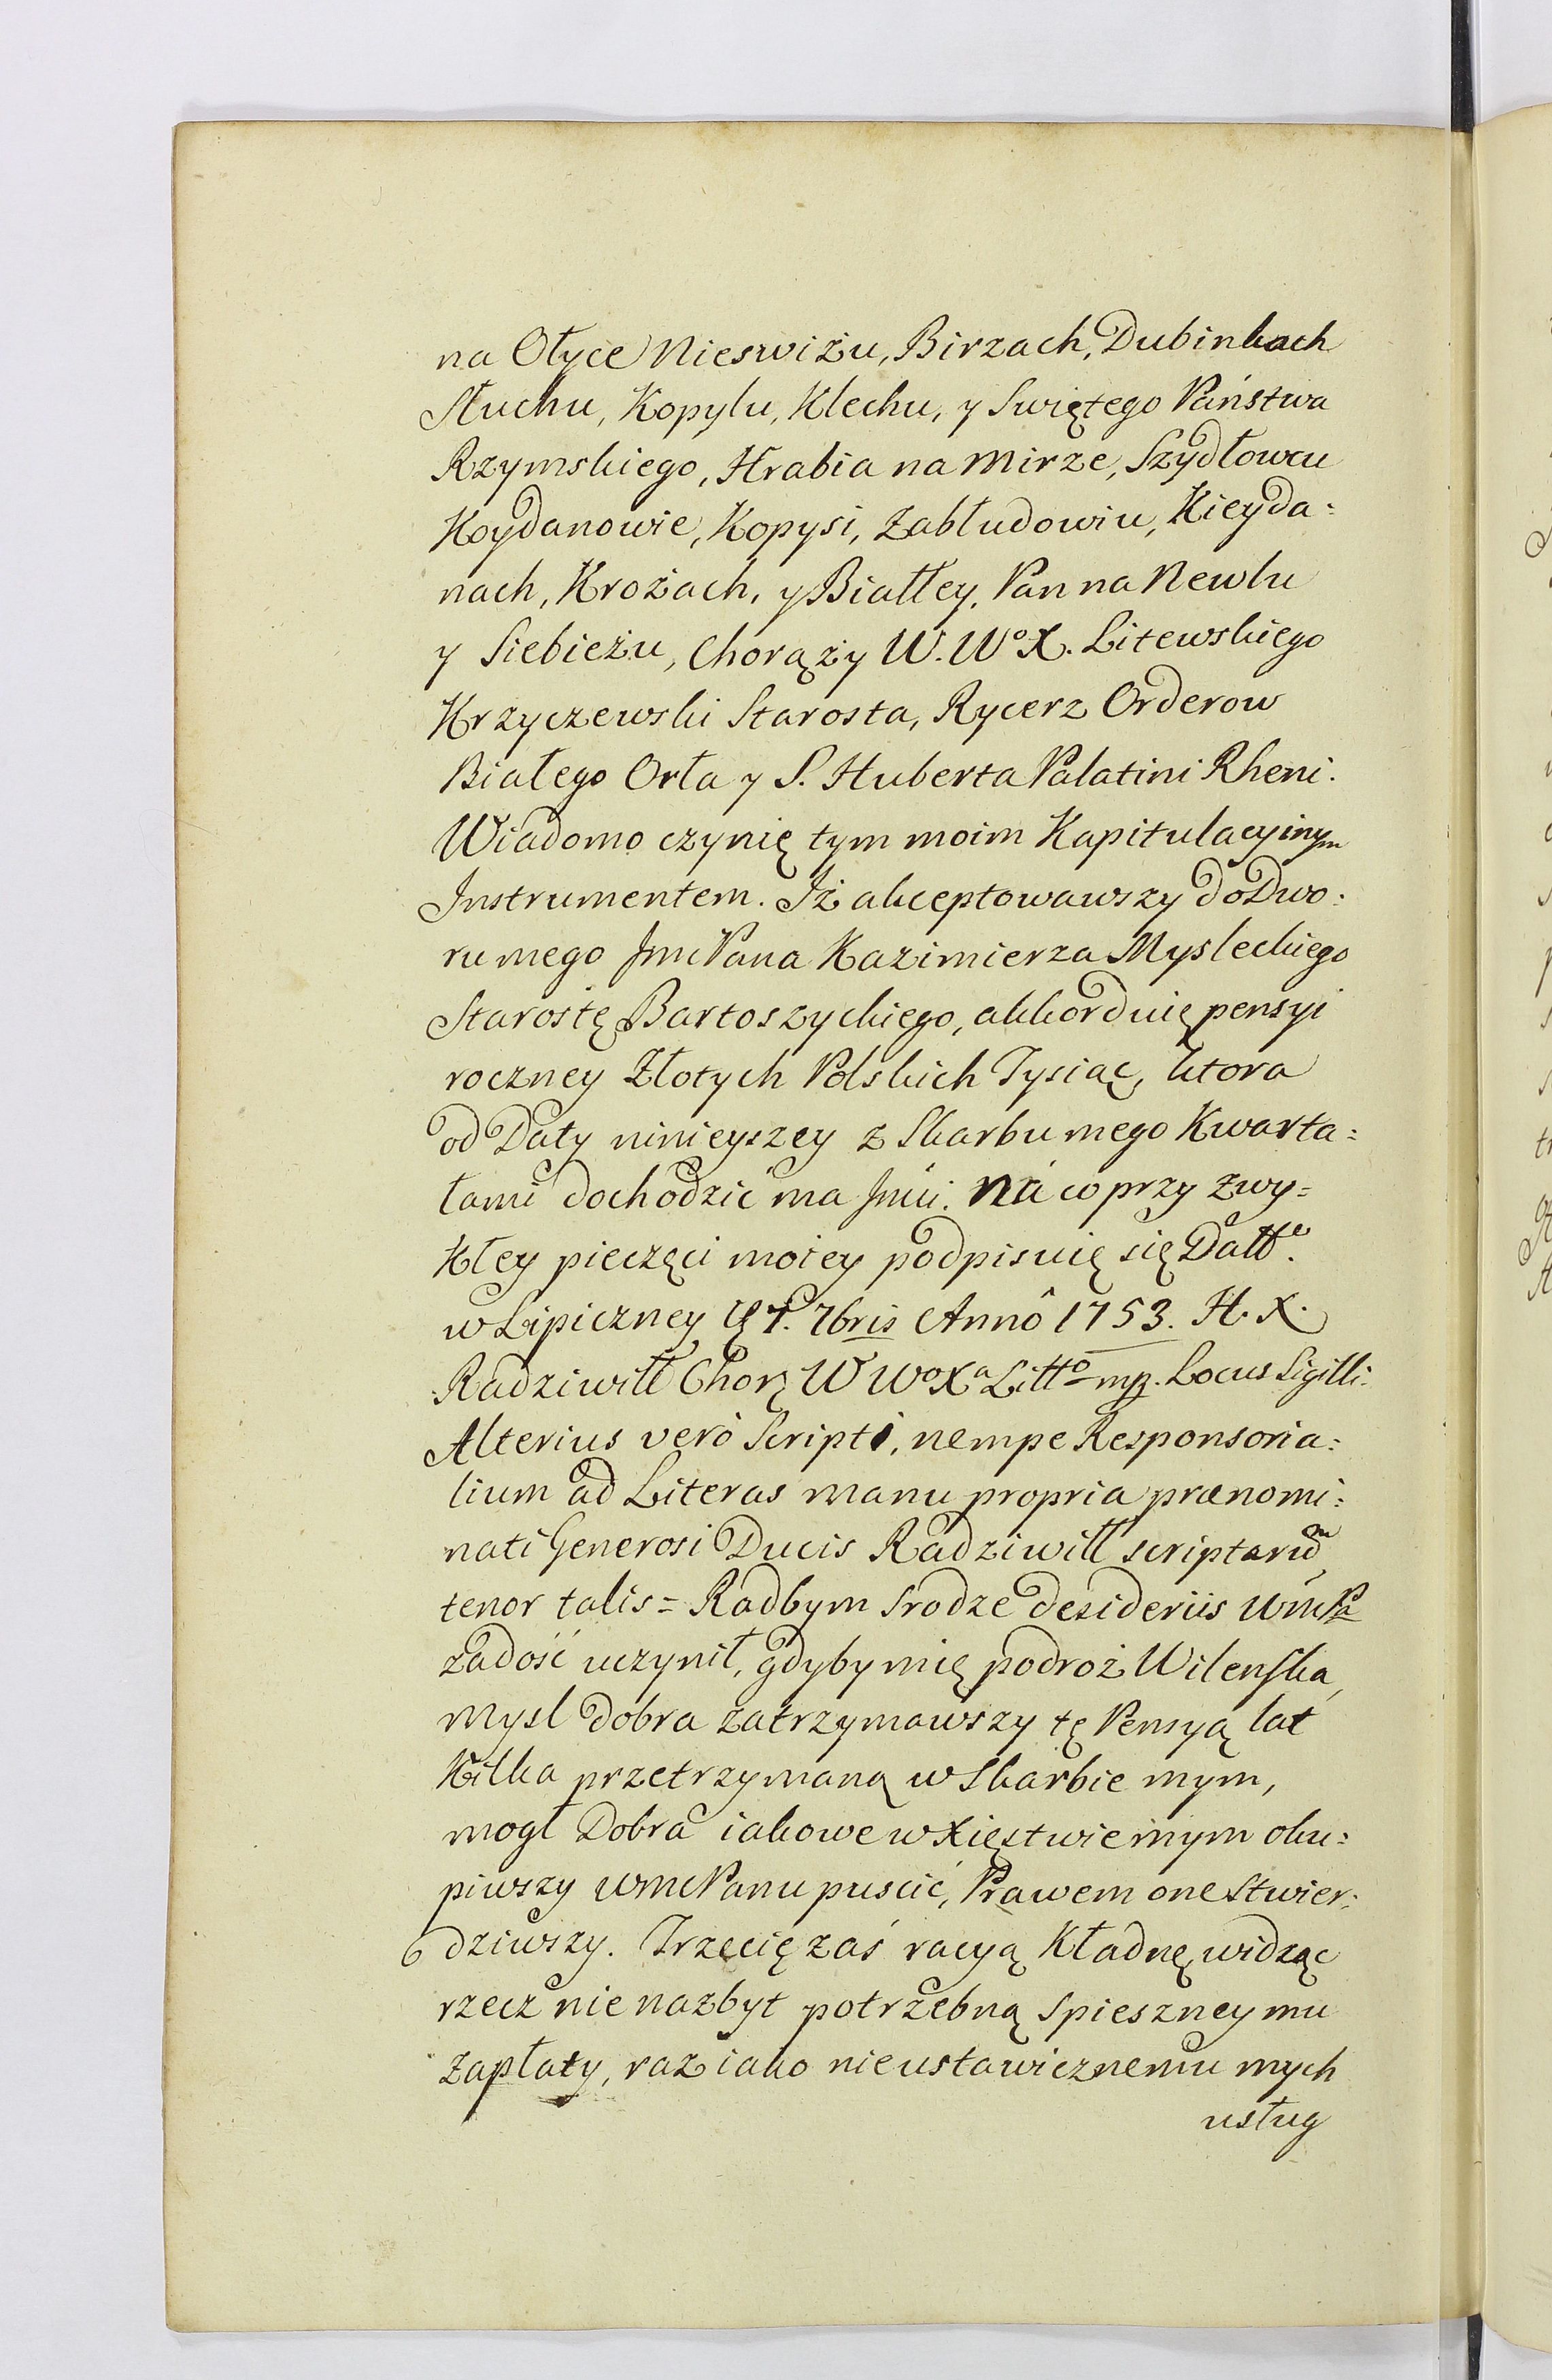 na Ołyce Nieswiżu, Birzach, Dubinkach
Słucku, Kopylu, Klecku, y Swiętego Państwa
Rzymskiego, Hrabia na Mirze, Szydłowcu
Koydanowie, Kopysi, Zabłudowiu, Kieyda=
nach, Krożach, y Białłey, Pan na Newlu
y Siebieżu, Chorąży W. Wº X. Litewskiego
Krzyczewski Starosta, Rycerz Orderow
Białego Orła y S. Huberta Palatini Rheni.
Wiadomo czynię tym moim Kapitulacyinym
Instrumentem. Iż akceptowawszy do Dwo=
ru mego Jmć Pana Kazimierza Mysleckiego
Starostę Bartoszyckiego, akkorduię pensyi
roczney Złotych Polskich Tysiąc, ktora
od Daty ninieyszey z Skarbu mego Kwarta=
łami dochodzić ma Jmći. Na co przy zwy=
kłey pieczęci moiey podpisuię się Datt.
w Lipiczney 7bris Annô 1753. H. X.
Radziwiłł Chorą W Wº Xª Littº mp. Locus Sigilli.
Alterius verò Scripti, nempe Responsoria=
lium ad Literas manu propria prænomi=
nati Generosi Ducis Radziwiłł scriptarum
tenor talis = Radbym srodze desideriis WmPa
zadość uczynił, gdyby mię podroż Wilenska,
Mysl dobra zatrzymawszy tę Pensyą lat
Kilka przetrzymaną w Skarbie mym,
mogł Dobra iakowe w Xięstwie mym oku=
piwszy WmcPanu puscić, Prawem one stwier=
dziwszy. Trzecię zaś racyą Kładnę, widząc
rzecz nie nazbyt potrzebną spieszney mu
zapłaty, raz iako nieustawicznemu mych
usług